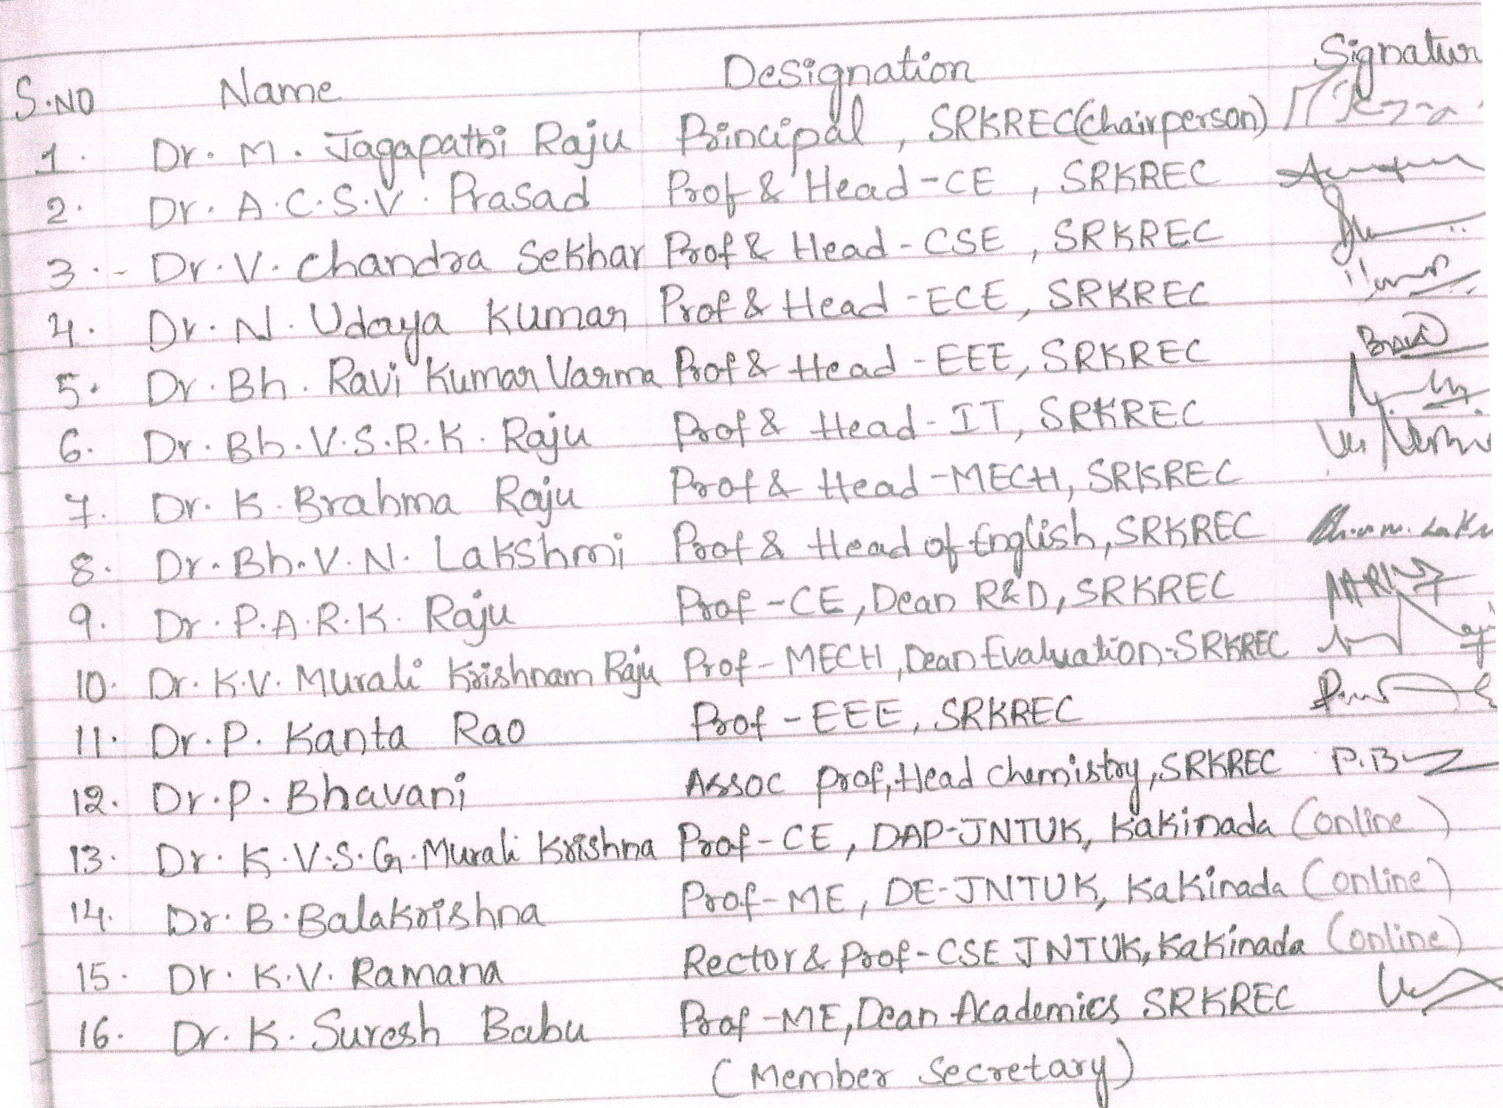 S.NO Name Designation Signatur
1. Dr. M. Jagapathi Raju Principal, SRKREC(Chairperson)
2. Dr. A.C.S.V. Prasad Prof & Head-CE, SRKREC
3. Dr. V. Chandra Sekhar Prof & Head-CSE, SRKREC
4. Dr. N. Udaya Kumar Prof & Head-ECE, SRKREC
5. Dr. Bh. Ravi Kumar Varma Prof & Head-EEE, SRKREC
6. Dr. Bh. V.S.R.K. Raju Prof & Head-IT, SRKREC
7. Dr. K. Brahma Raju Prof & Head-MECH, SRKREC
8. Dr. Bh. V. N. Lakshmi Prof & Head of English, SRKREC
9. Dr. P.A.R.K. Raju Prof-CE, Dean R&D, SRKREC
10. Dr. K.V. Murali Krishnam Raju Prof-MECH, Dean Evaluation-SRKREC
11. Dr. P. Kanta Rao Prof-EEE, SRKREC
12. Dr. P. Bhavani Assoc Prof, Head Chemistry, SRKREC
13. Dr. K.V.S.G. Murali Krishna Prof-CE, DAP-JNTUK, Kakinada (online)
14. Dr. B. Balakrishna Prof-ME, DE-JNTUK, Kakinada (online)
15. Dr. K.V. Ramana Rector & Prof-CSE JNTUK, Kakinada (online)
16. Dr. K. Suresh Babu Prof-ME, Dean Academics SRKREC
(Member Secretary)